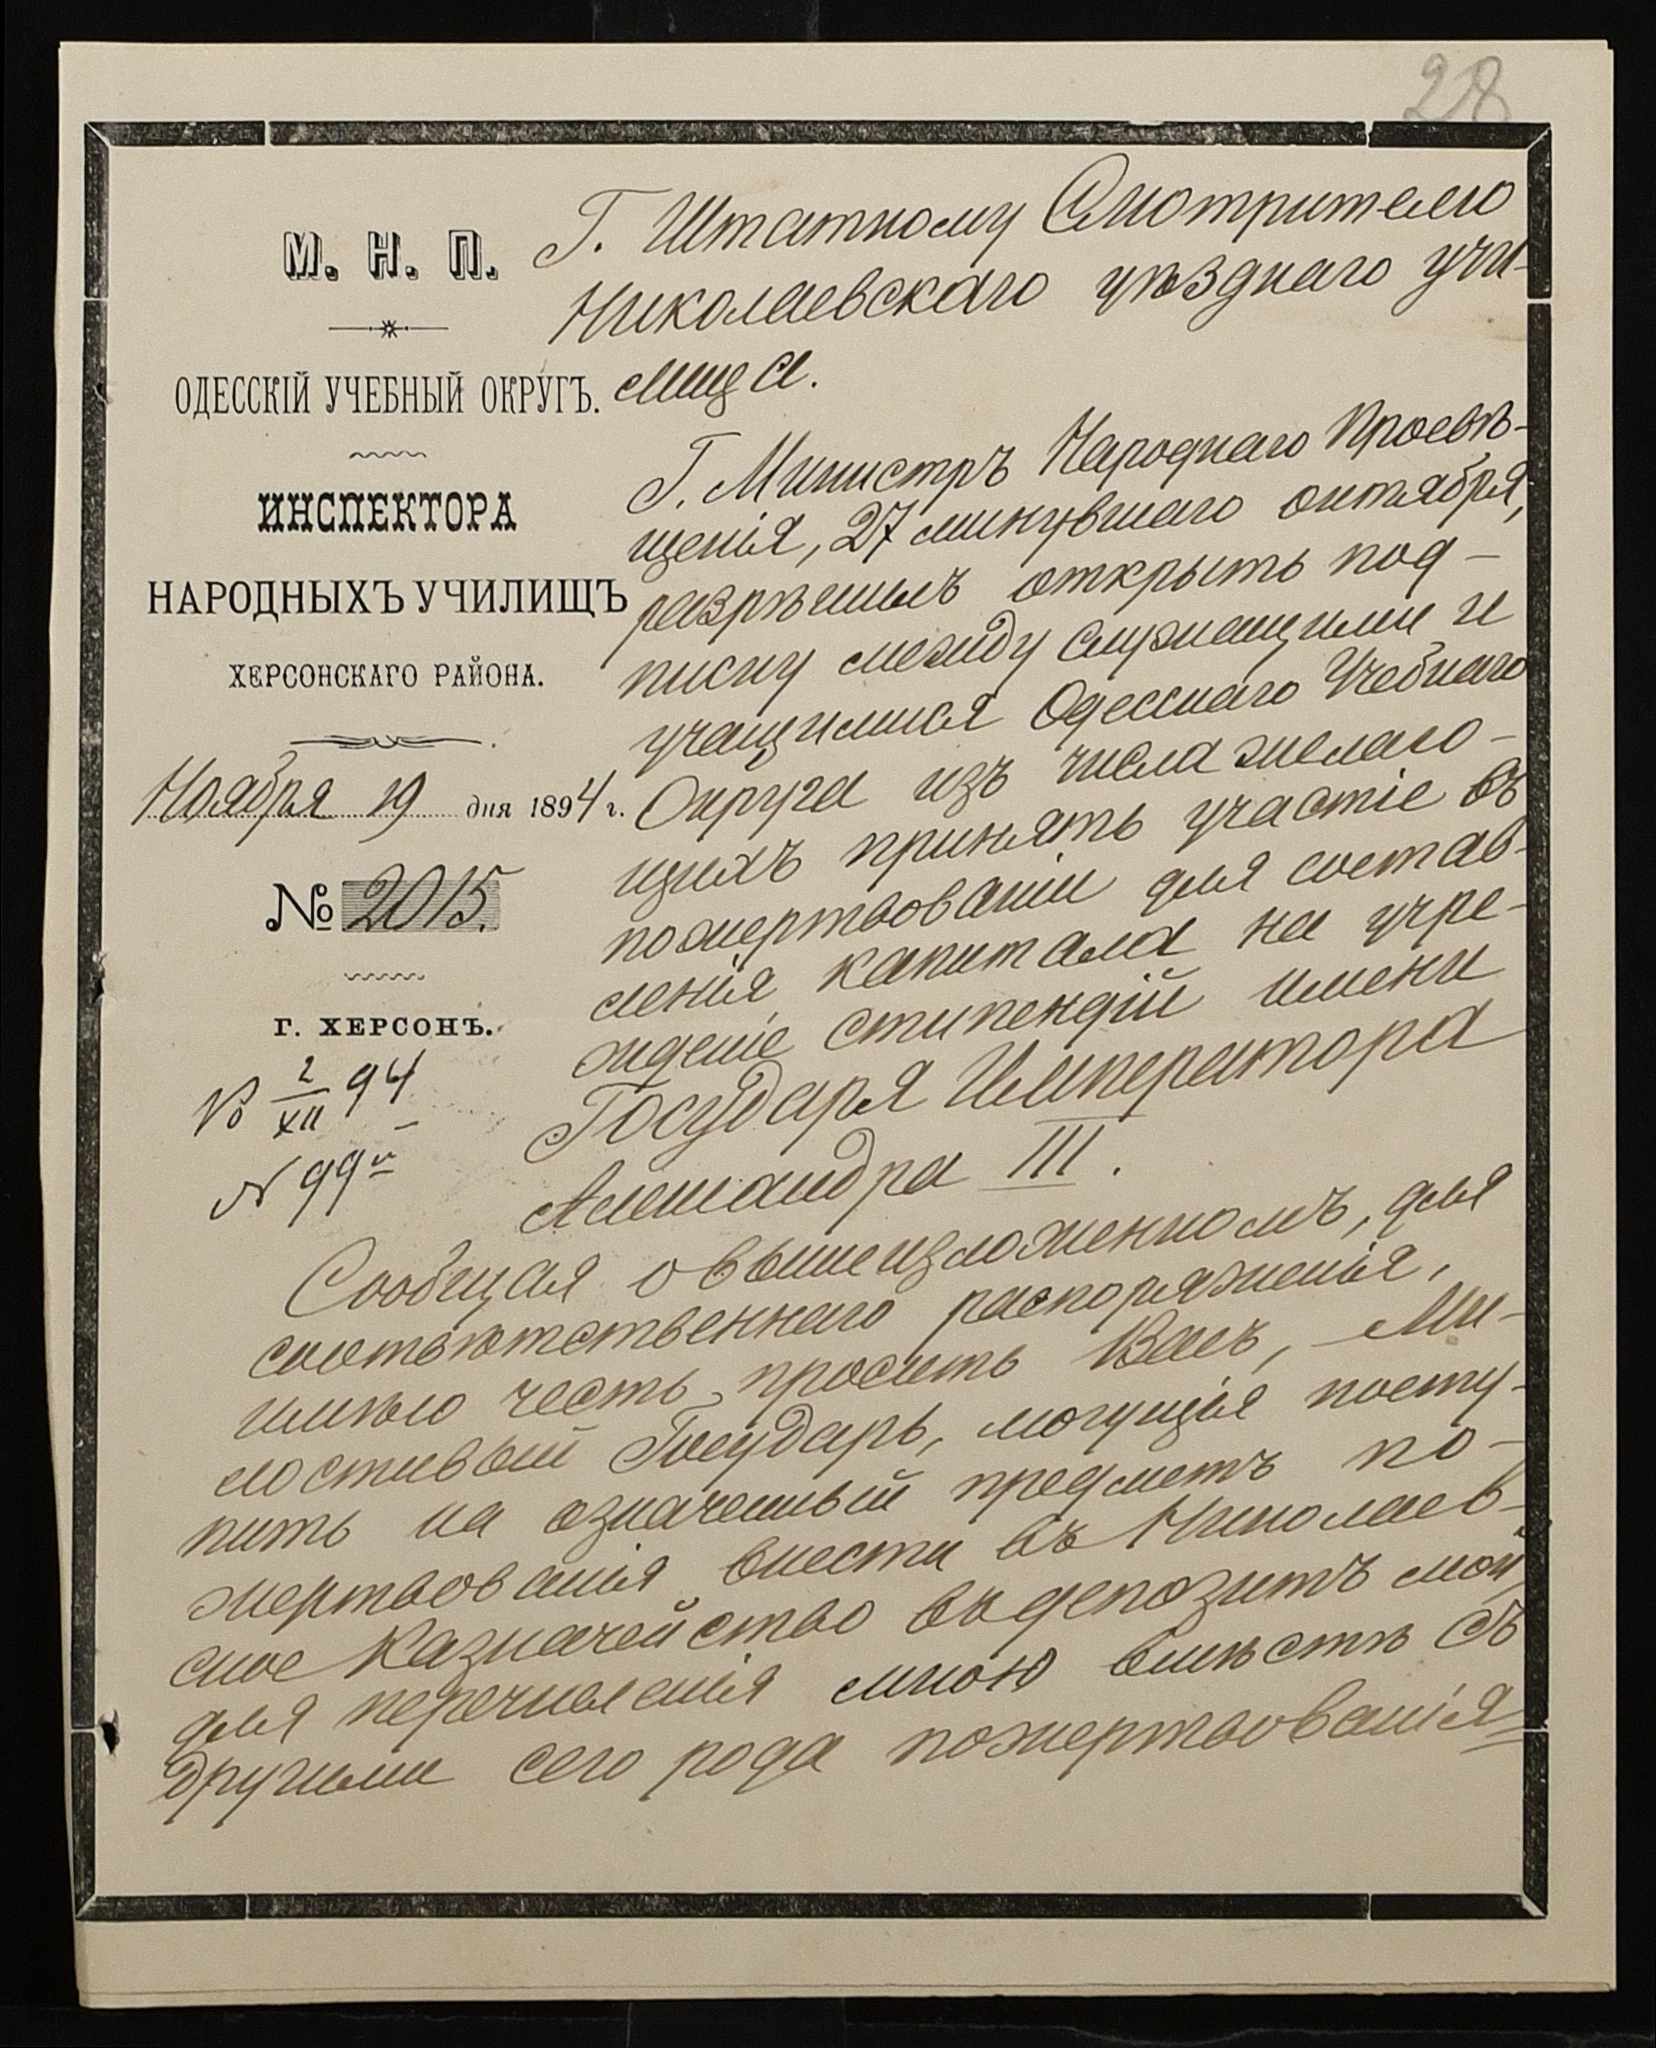 28
М. Н. П.
ОДЕССКІЙ УЧЕБНЫЙ ОКРУГЪ.
ИНСПЕКТОРА
НАРОДНЫХЪ УЧИЛИЩЪ
ХЕРСОНСКАГО РАЙОНА.
Ноября 19 дня 1894 г.
№ 2015.
Г. ХЕРСОНЪ.
2/XII 94
N 99
Г. Штатному Смотрителю
Николаевскаго уѣзднаго учи-
лища.
Г. Министръ Народнаго Просвѣ-
щенія, 27 минувшаго октября,
разрѣшилъ открыть под-
писку между служащими и
учащимися Одесскаго Учебнаго
Округа изъ числа желаю-
щихъ принять участіе въ
пожертвованіи для состав-
ленія капитала на учре-
жденіе стипендій имени
Государя Императора
Александра III.
Сообщая о вышеизложенномъ, для
соотвѣтственнаго распоряженія,
имѣю честь просить Васъ, Ми-
лостивый Государь, могущія посту-
пить на означенный предметъ по-
жертвованія внести въ Николаев-
ское Казначейство въ депозитъ мой
для перечисленія мною вмѣстѣ съ
другими сего рода пожертвованія=